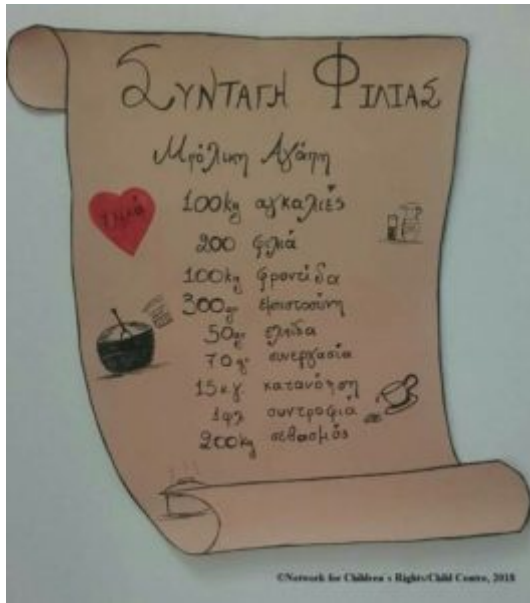 ΣΥΝΤΑΓΗ ΦΙΛΙΑΣ
Μπόλικη Αγάπη
100kg αγκαλιές
200 φιλιά
100kg φροντίδα
300gr εμπιστοσύνη
50gr ελπίδα
70gr συνεργασία
15κγ. κατανόηση
1φλ συντροφιά
200kg σεβασμός
©Network for Children´s Rights/Child Centre, 2018